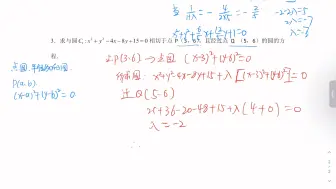 -2-2λ=5
λ=-7
3. 求与圆C:x²+y²-4x-8y+15=0相切于点P(3,6),且经过点Q(5,6)的圆的方
程.
点圆.半径为0的圆
P(a,b)
(x-a)²+(y-b)²=0
∴P(3,6)→点圆 (x-3)²+(y-6)²=0
x²+y²-4x-8y+15+λ[(x-3)²+(y-6)²]=0
过Q(5.6)
25+36-20-48+15+λ(4+0)=0
λ=-2